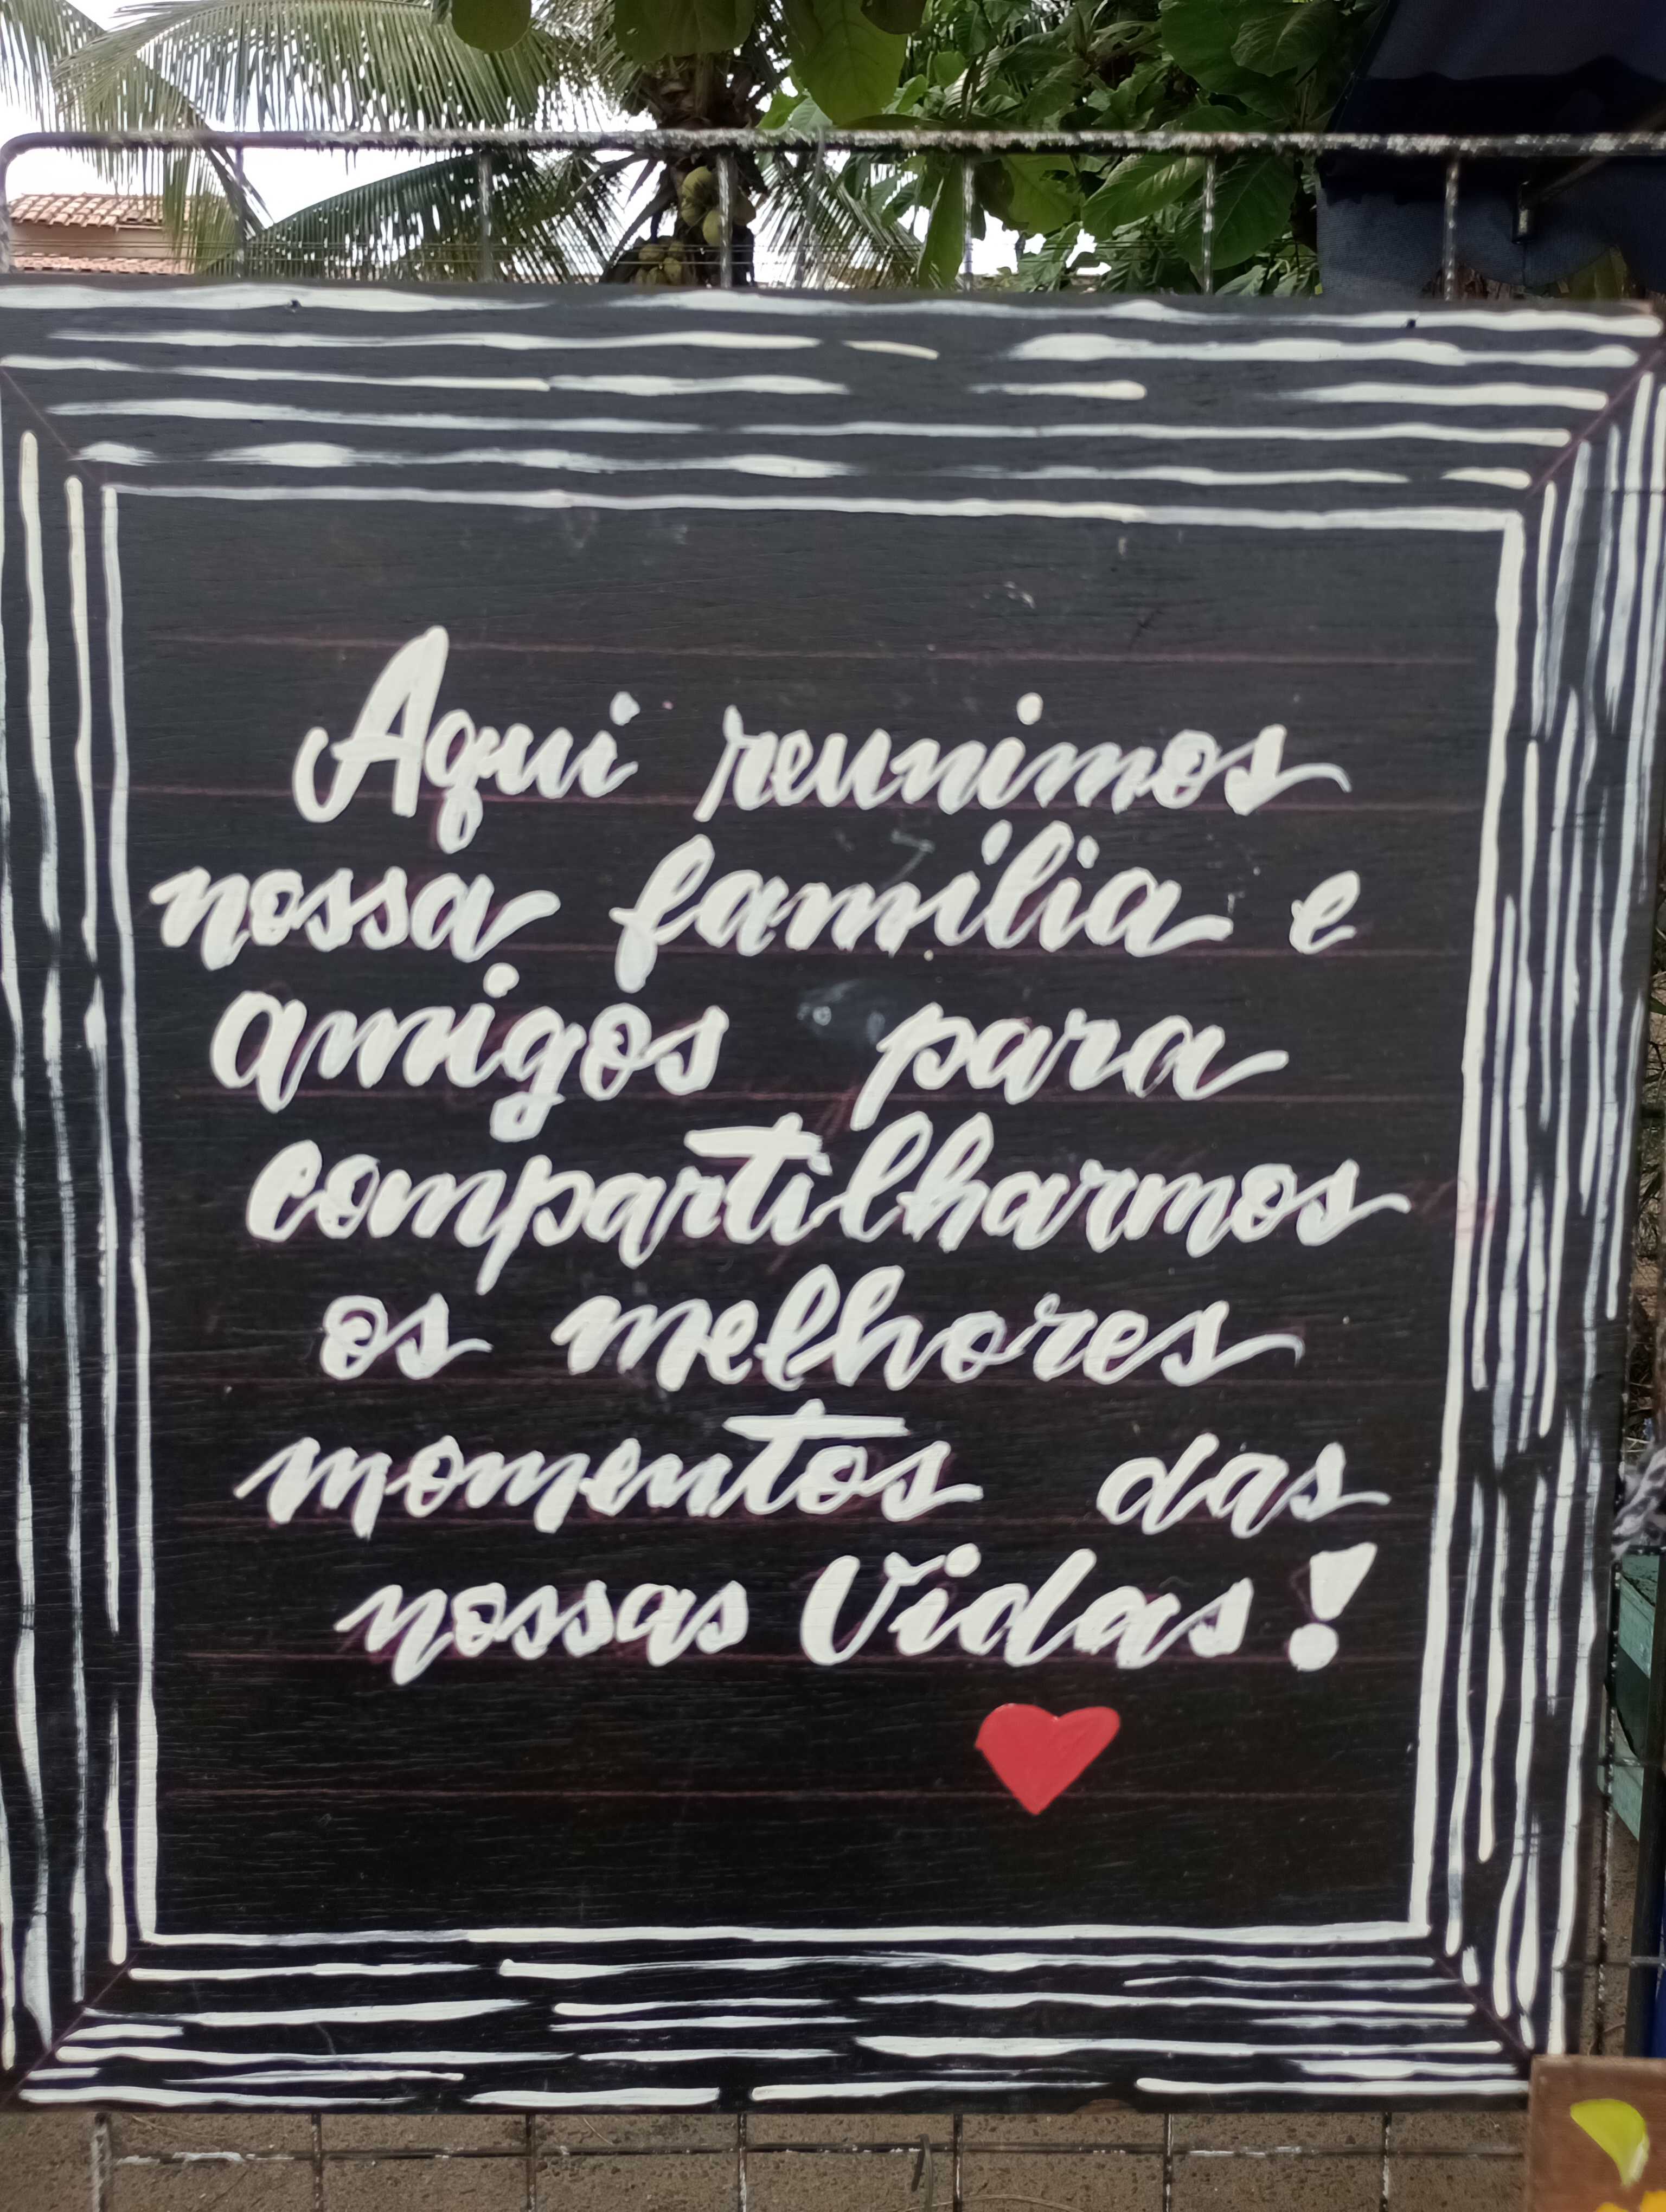 Aqui reunimos
nossa família e
amigos para
compartilharmos
os melhores
momentos das
nossas Vidas!